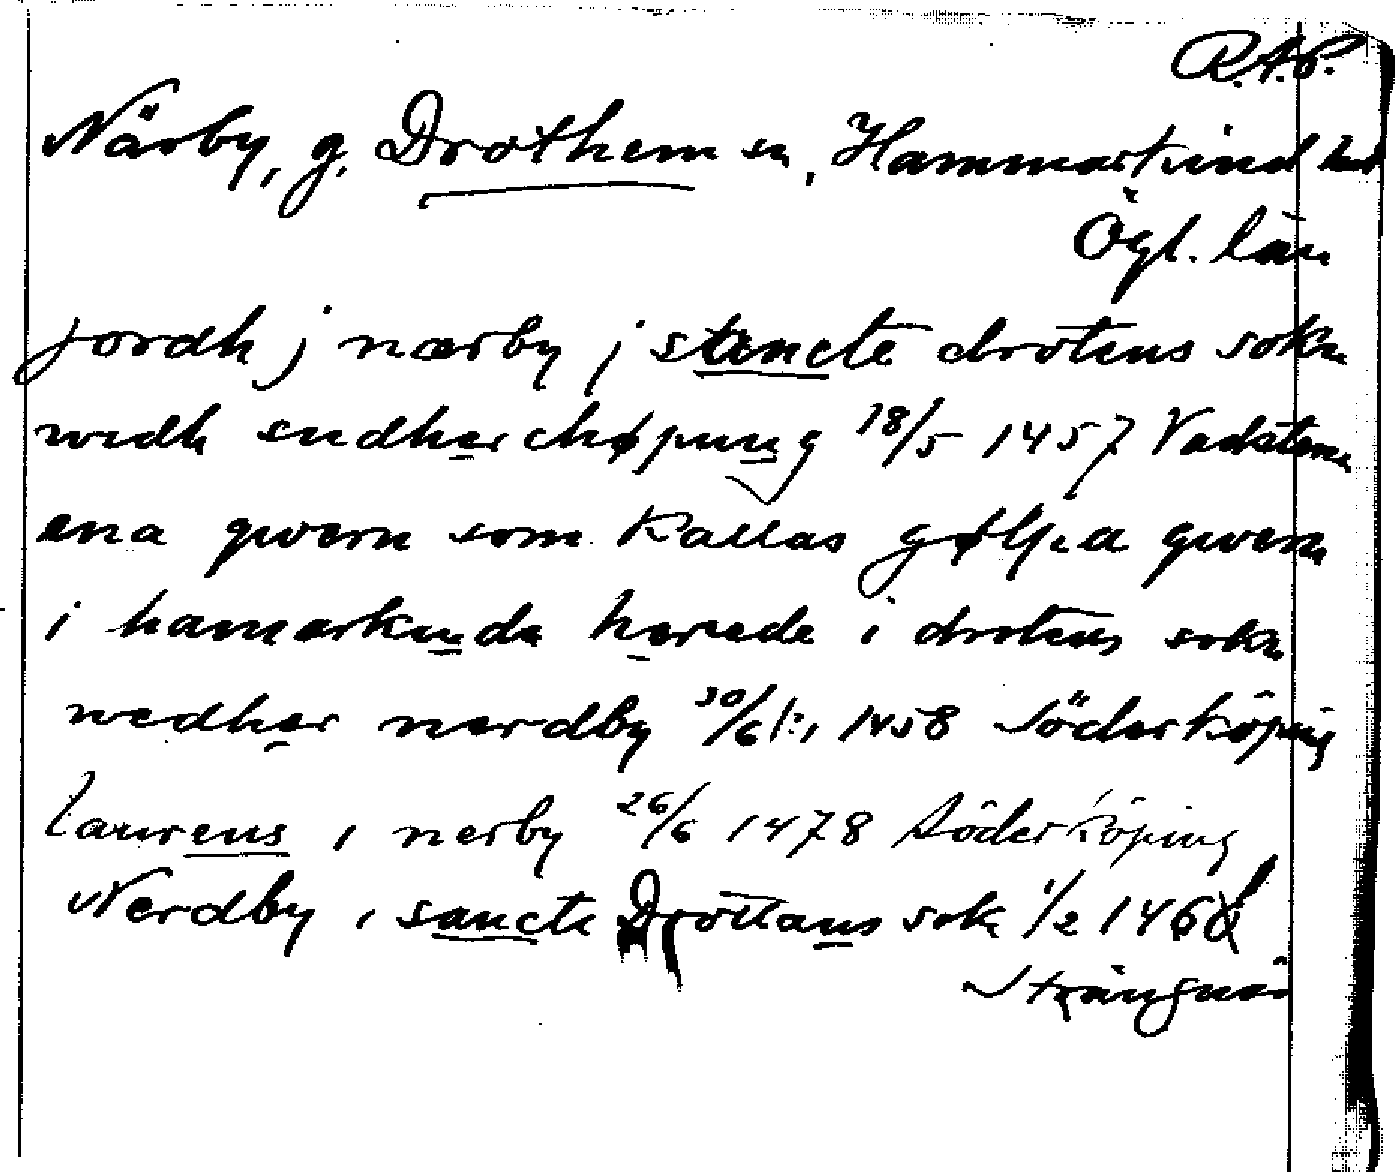 R.A.P.
Närby, g. Drothem sn, Hammarkind hd
Ögl. län
jordh j nærby j stencte drotens sokn
widh sudherchøpung 18/5 1457 Vadstena
ena qwern som kallas qwern
i hamarkunda hærede i drotens sokn
wedher nerdby 30/6 1458 Söderköping
Laurens i nerby 26/6 1478 Söderköping
Nerdby i sancte Drottans sok 1/2
Strängnäs